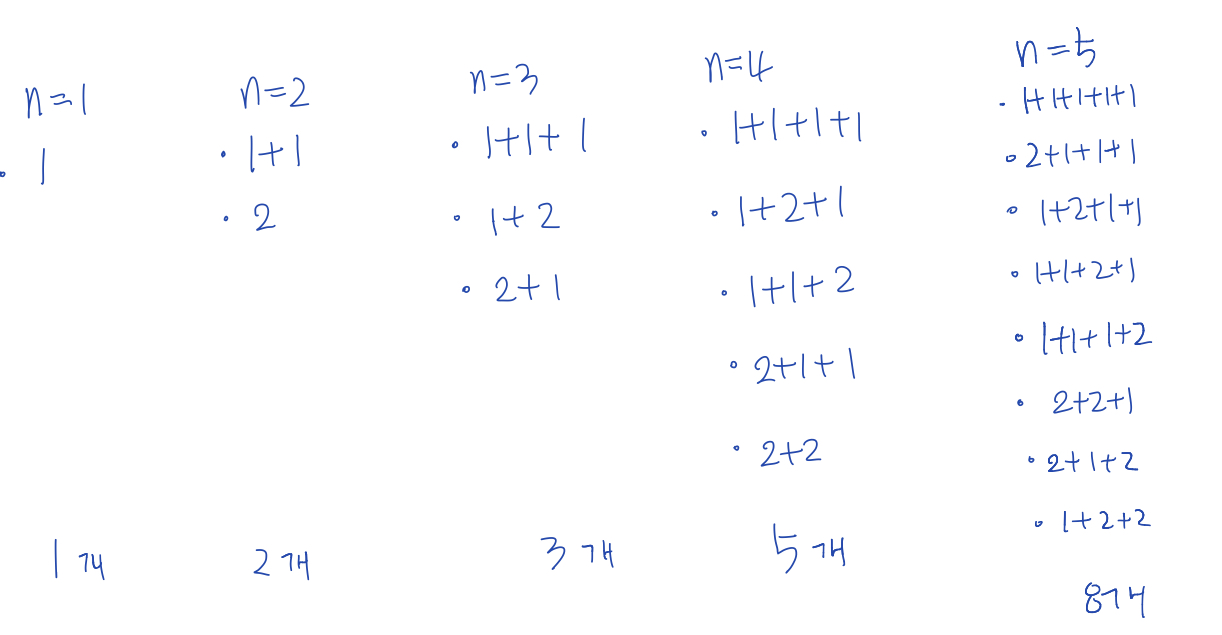 n=1
· 1
1개
n=2
· 1+1
· 2
2개
n=3
· 1+1+1
· 1+2
· 2+1
3개
n=4
· 1+1+1+1
· 1+2+1
· 1+1+2
· 2+1+1
· 2+2
5개
n=5
· 1+1+1+1+1
· 2+1+1+1
· 1+2+1+1
· 1+1+2+1
· 1+1+1+2
· 2+2+1
· 2+1+2
· 1+2+2
8개